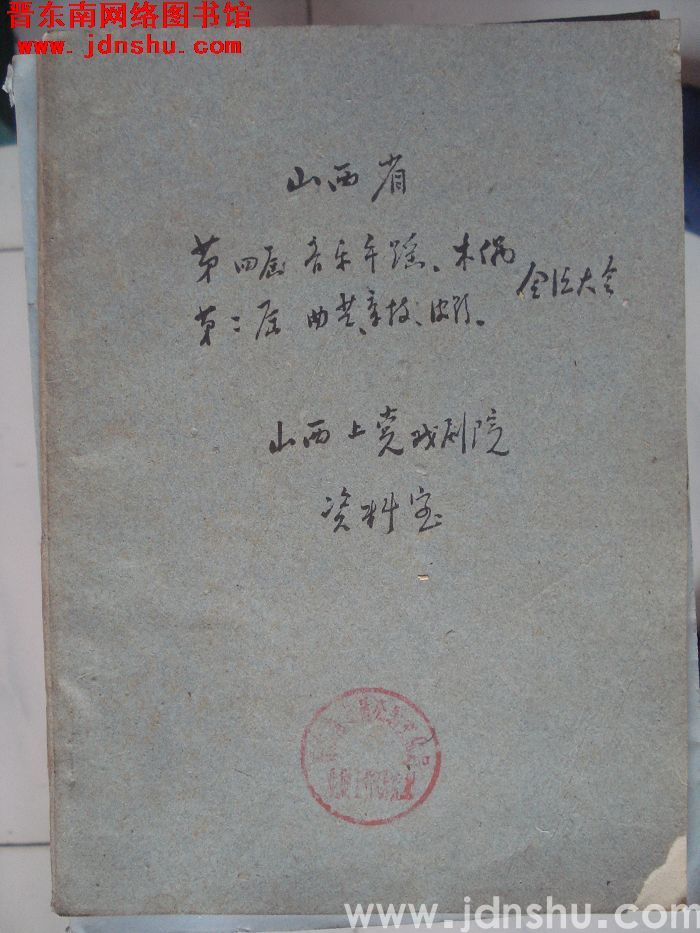 晋东南网络图书馆
www.jdnshu.com
山西省
第四届音乐午蹈、木偶
第二届曲芸、杂技、皮影。
会演大会
山西上党戏剧院
资料室
www.jdnshu.com